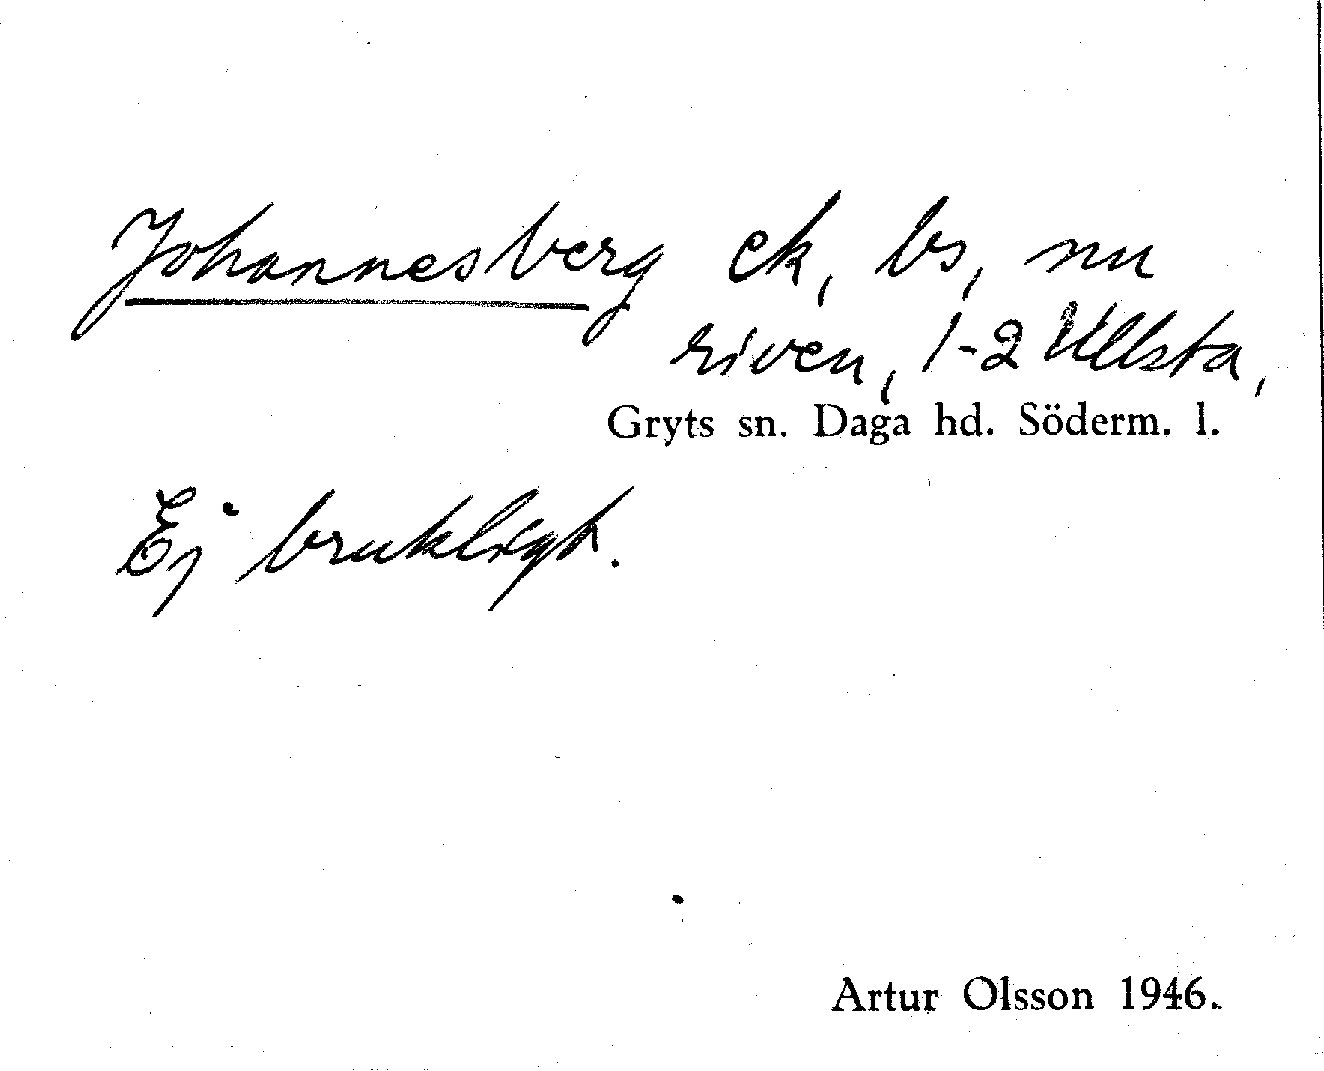 Johannesberg ek, bs, nu
riven, 1-2 Ullsta,
Gryts sn. Daga hd. Söderm. l.
Ej brukligt.
Artur Olsson 1946.